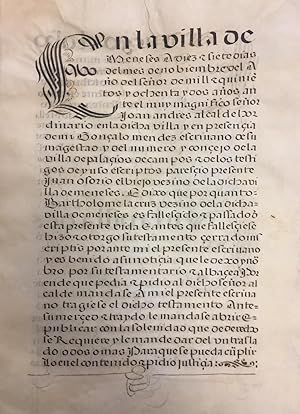 En la villa de
Meneses A diez E siete dias
del mes de nobiembre del A
ño del señor de mill E quinie
ntos y ochenta y dos años an
te el muy magnifico señor
Joan andres alcalde or
dinario en la dicha villa y en presençia
de mi Gonçalo mendes escriuano de su
magestad y del numero y conçejo de la
villa de palaçios de campos E de los testi
gos de yuso escriptos paresçio presente
Juan osorio el biejo vezino de la dicha v
illa de meneses. E dixo que por quanto
Bartholome la cruz vezino de la dicha v
illa de meneses es fallesçido E passado d
esta presente vida E antes que fallesçiese
hizo E otorgo su testamento çerrado em
criptis por ante mi el presente escriuano
y es benido a su notiçia que le dexo y no
bro por su testamentario E albaçea Por
ende que pedia E pidio al dicho señor al
calde mandase A mi el presente escriua
no traxiese el dicho testamento Ante
su merçed E traydo le mandase abrir E
publicar con la solenidad que de derecho
se Requiere y le mandar dar vn trasla
do o dos o mas Para que se pueda cumplir
lo en el contenido E pidio justiçia